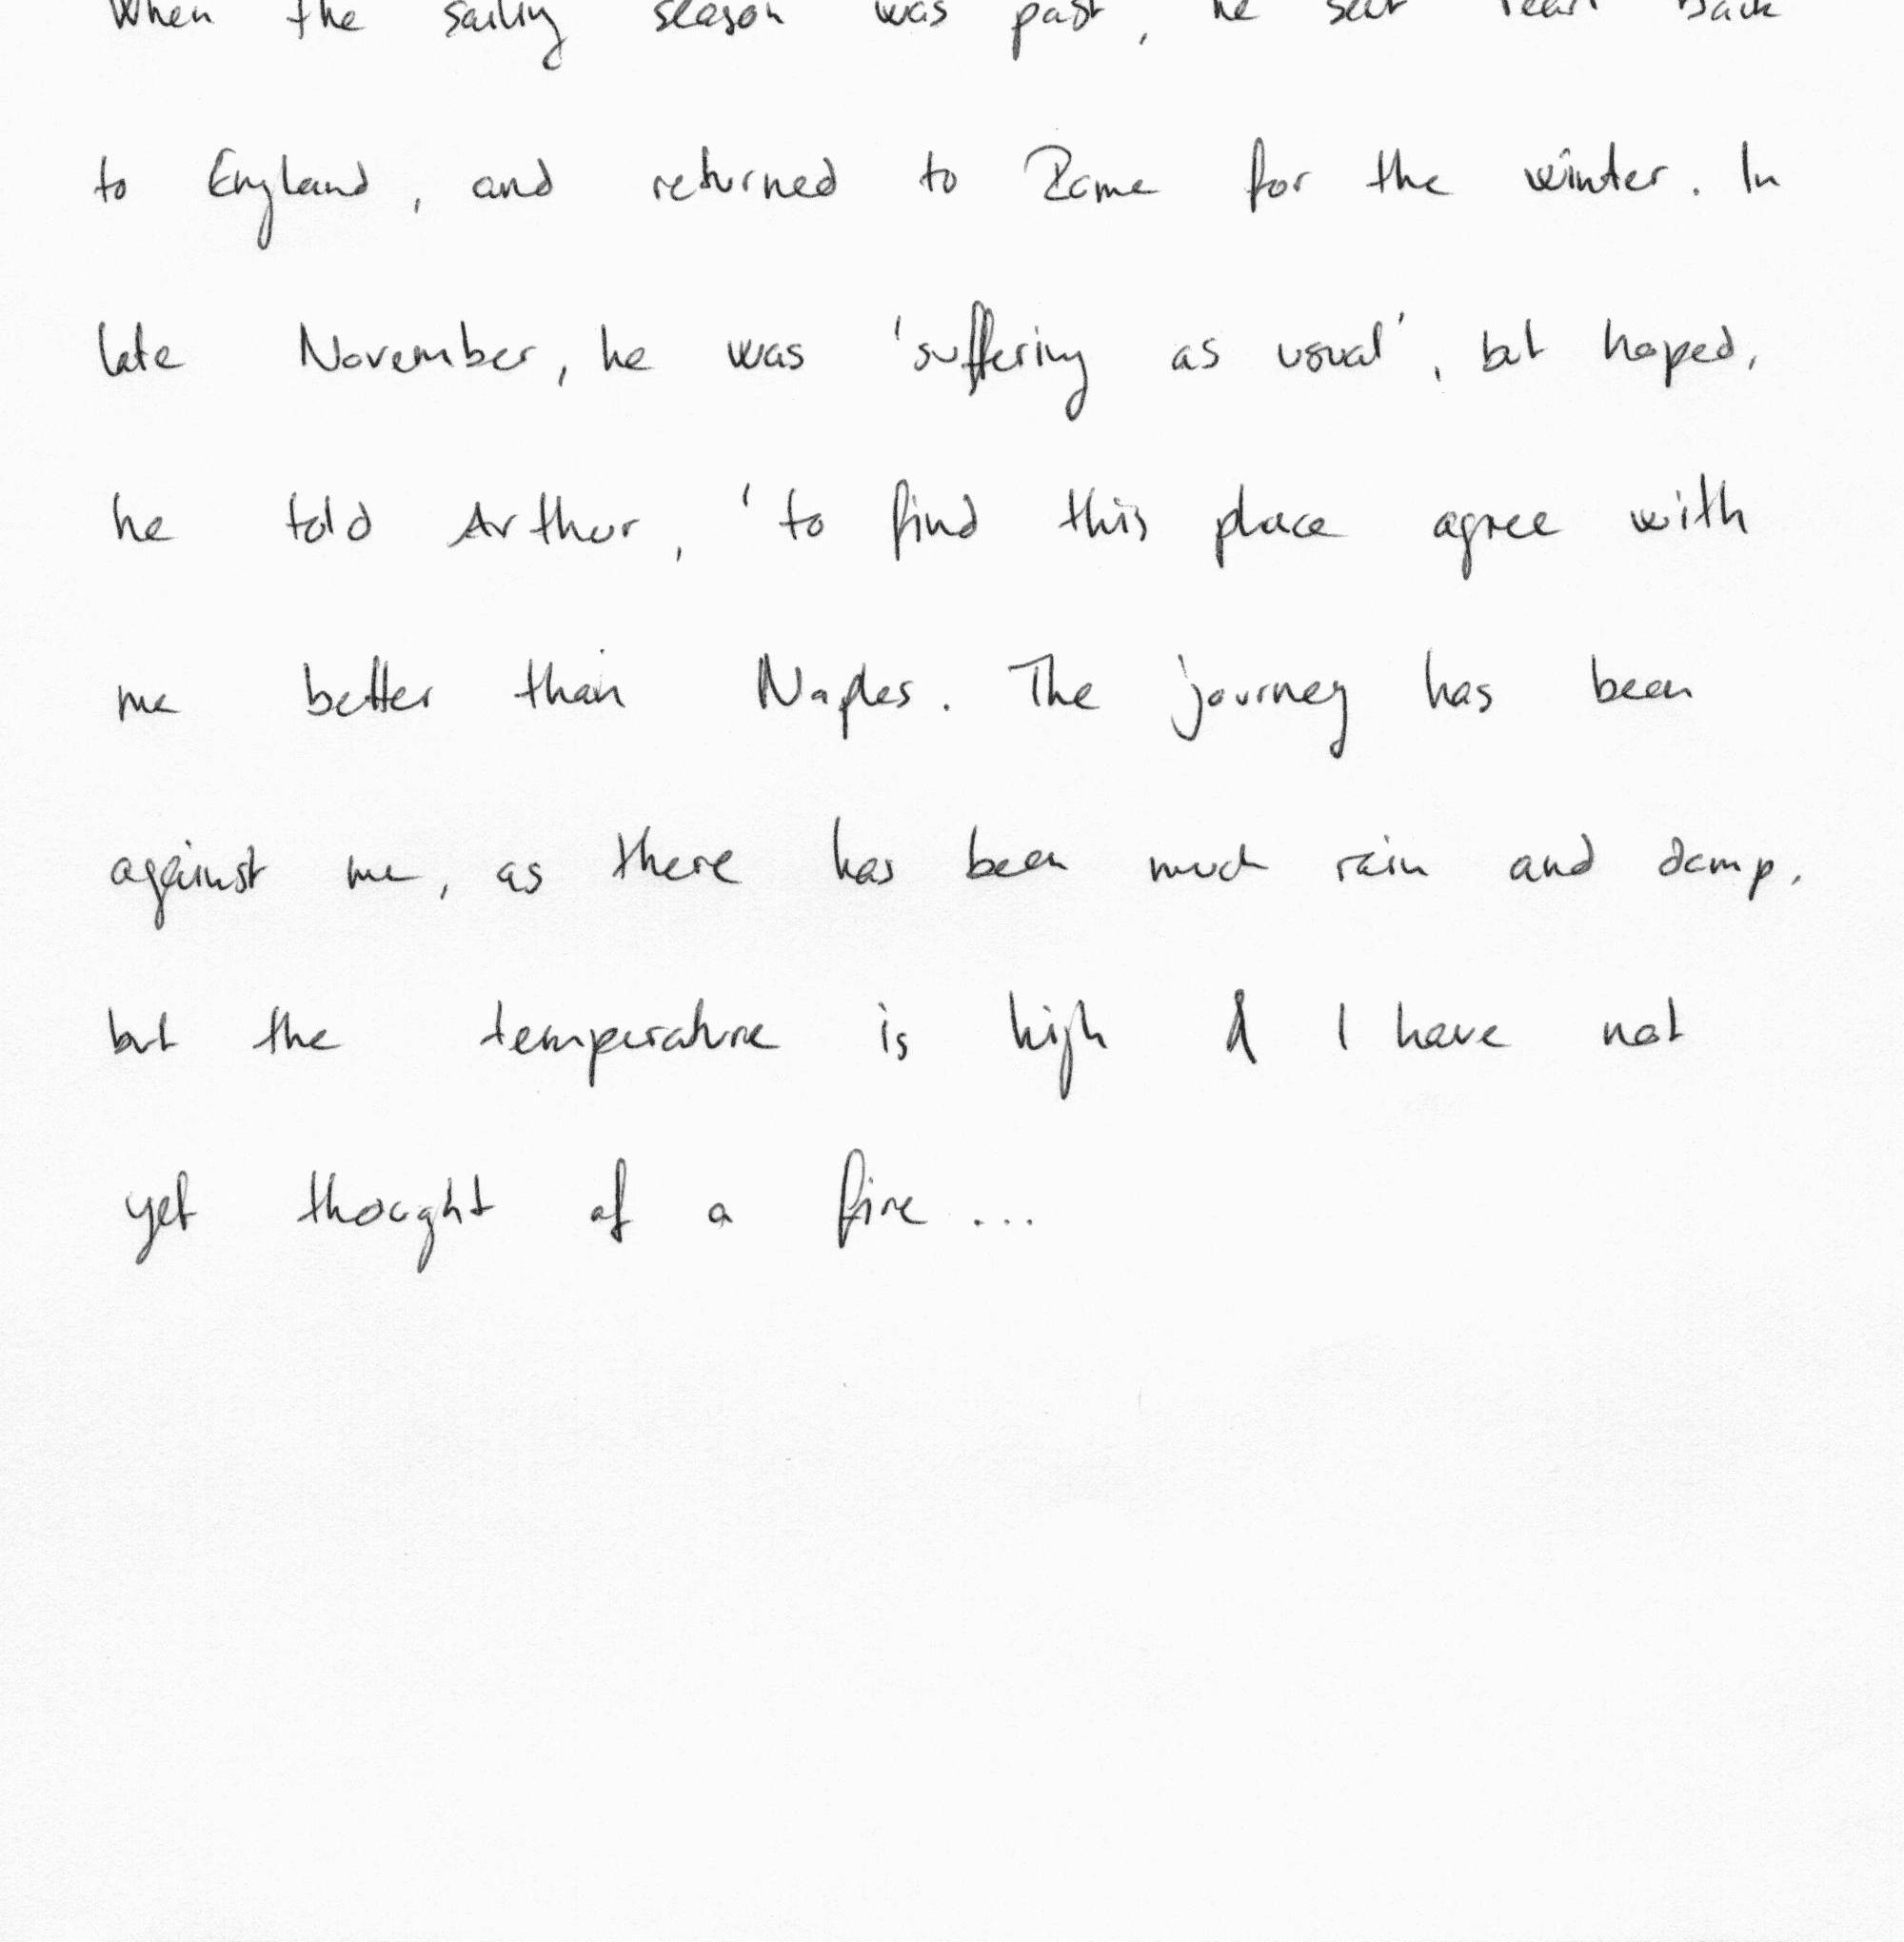 When the sailing season was past, he sent Pearl back
to England, and returned to Rome for the winter. In
late November, he was 'suffering as usual', but hoped,
he told Arthur, 'to find this place agree with
me better than Naples. The journey has been
against me, as there has been much rain and damp,
but the temperature is high & I have not
yet thought of a fire ...